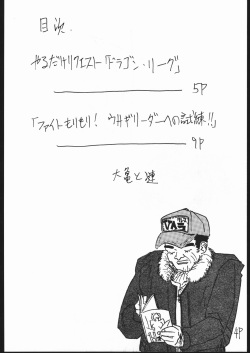 目次.
やるだけリクエスト「ドラゴン・リーグ」
5P
「ファイトもりもり! ウサギリーダーへの試練!!」
9P
大亀と迷
4P